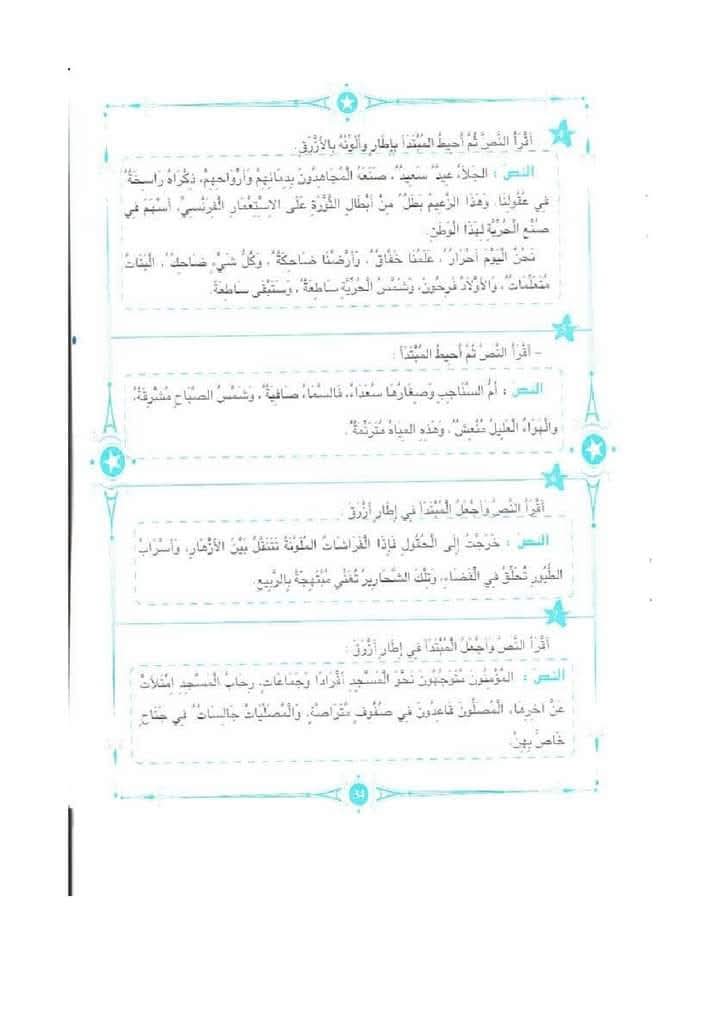 4
أَقْرَأُ النَّصَّ ثُمَّ أُحِيطُ المُبْتَدَأَ بِإِطَارٍ وَأُلَوِّنُهُ بِالأَزْرَقِ.
النص : الجَلاَءُ عِيدٌ سَعِيدٌ، صَنَعَهُ الْمُجَاهِدُونَ بِدِمَائِهِمْ وَأَرْوَاحِهِمْ، ذِكْرَاهُ رَاسِخَةٌ
فِي عُقُولِنَا. وَهَذَا الزَّعِيمُ بَطَلٌ مِنْ أَبْطَالِ الثَّوْرَةِ عَلَى الاِسْتِعْمَارِ الْفَرَنْسِيِّ، أَسْهَمَ فِي
صُنْعِ الْحُرِّيَّةِ لِهَذَا الْوَطَنِ.
نَحْنُ الْيَوْمَ أَحْرَارٌ، عَلَمُنَا خَفَّاقٌ وَأَرْضُنَا ضَاحِكَةٌ، وَكُلُّ شَيْءٍ ضَاحِكٌ، الْبَنَاتُ
مُتَعَلِّمَاتٌ، وَالأَوْلاَدُ فَرِحُونَ، وَشَمْسُ الْحُرِّيَّةِ سَاطِعَةٌ، وَسَتَبْقَى سَاطِعَةً.
5
- أَقْرَأُ النَّصَّ ثُمَّ أُحِيطُ المُبْتَدَأَ :
النص : أُمُّ السَّنَاجِبِ وَصِغَارُهَا سُعَدَاءُ، فَالسَّمَاءُ صَافِيَةٌ، وَشَمْسُ الصَّبَاحِ مُشْرِقَةٌ،
وَالْهَوَاءُ الْعَلِيلُ مُنْعِشٌ، وَهَذِهِ المِيَاهُ مُتَرَنِّمَةٌ.
6
أَقْرَأُ النَّصَّ وَأَجْعَلُ الْمُبْتَدَأَ فِي إِطَارٍ أَزْرَقَ :
النص : خَرَجْتُ إِلَى الْحُقُولِ فَإِذَا الْفَرَاشَاتُ الْمُلَوَّنَةُ تَتَنَقَّلُ بَيْنَ الأَزْهَارِ، وَأَسْرَابُ
الطُّيُورِ تُحَلِّقُ فِي الْفَضَاءِ، وَتِلْكَ الشَّحَارِيرُ تُغَنِّي مُبْتَهِجَةً بِالرَّبِيعِ.
7
أَقْرَأُ النَّصَّ وَأَجْعَلُ الْمُبْتَدَأَ فِي إِطَارٍ أَزْرَقَ :
النص : المُؤْمِنُونَ مُتَوَجِّهُونَ نَحْوَ الْمَسْجِدِ أَفْرَادًا وَجَمَاعَاتٍ، رِحَابُ الْمَسْجِدِ اِمْتَلأَتْ
عَنْ آخِرِهَا، الْمُصَلُّونَ قَاعِدُونَ فِي صُفُوفٍ مُتَرَاصَّةٍ، وَالْمُصَلِّيَاتُ جَالِسَاتٌ فِي جَنَاحٍ
خَاصٍّ بِهِنَّ.
34